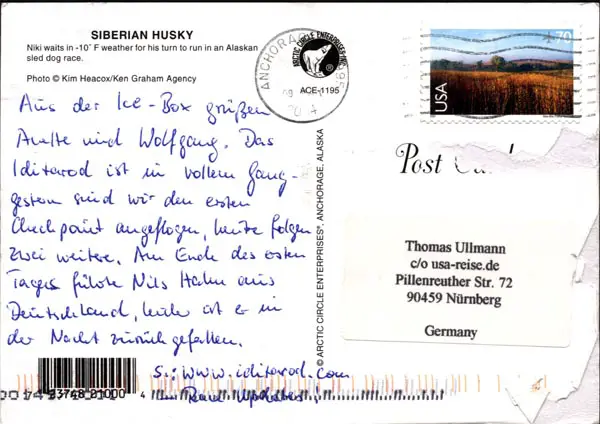 SIBERIAN HUSKY
Niki waits in -10˚ F weather for his turn to run in an Alaskan
sled dog race.
Photo © Kim Heacox/Ken Graham Agency
Aus der Ice-Box grüßen
und Wolfgang. Das
Iditarod ist in vollem Gang -
gestern sind wir den ersten
Checkpoint angeflogen, heute folgen
zwei weitere. Am Ende des ersten
Tages führte Nils Hahn aus
Deutschland, leider ist er in
der Nacht zurückgefallen.
S.: www.iditarod.com
Race Updates!
23748 21000 4
ANCHORAGE
ARCTIC CIRCLE ENTERPRISES
®
ACE-1195
© ARCTIC CIRCLE ENTERPRISES®, ANCHORAGE, ALASKA
70
USA
Post
Thomas Ullmann
c/o usa-reise.de
Pillenreuther Str. 72
90459 Nürnberg
Germany